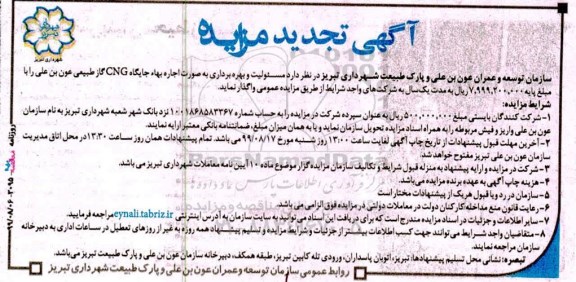 آگهی تجدید مزایده
شهرداری تبریز
سازمان توسعه و عمران عون بن علی و پارک طبیعت شهرداری تبریز در نظر دارد مسئولیت و بهره برداری به صورت اجاره بهاء جایگاه CNG گاز طبیعی عون بن علی را با
مبلغ پایه ۷,۹۹۹,۲۰۰,۰۰۰ ریال به مدت یک سال به شرکت های واجد شرایط از طریق مزایده عمومی واگذار نماید.
شرایط مزایده:
۱- شرکت کنندگان بایستی مبلغ ۵۰۰,۰۰۰,۰۰۰ ریال به عنوان سپرده شرکت در مزایده را به حساب شماره ۱۰۰۱۸۶۸۵۸۳۳۶۷ نزد بانک شهر شعبه شهرداری تبریز به نام سازمان
عون بن علی واریز و فیش مربوطه را به همراه اسناد مزایده تحویل سازمان نماید و یا به همان میزان مبلغ، ضمانتنامه بانکی معتبر ارایه نمایند.
۲- آخرین مهلت قبول پیشنهادات از تاریخ چاپ آگهی لغایت ساعت ۱۳:۰۰ روز شنبه مورخ ۹۹/۰۸/۱۷ می باشد. تمام پیشنهادات همان روز ساعت ۱۳:۳۰ در محل اتاق مدیریت
سازمان عون بن علی تبریز مفتوح خواهد شد.
۳- شرکت در مزایده و ارایه پیشنهاد به منزله قبول شرایط و تکالیف سازمان مزایده گزار موضوع ماده ۱۰ آیین نامه معاملات شهرداری تبریز می باشد.
۴- هزینه چاپ آگهی به عهده برنده مزایده می باشد.
۵- سازمان در رد و یا قبول هر یک از پیشنهادات مختار است
۶- رعایت قانون منع مداخله کارکنان دولت در معاملات دولتی در مزایده فوق الزامی می باشد.
۷- سایر اطلاعات و جزئیات در اسناد مزایده مندرج است که برای دریافت این اسناد می توانید به سایت سازمان به آدرس اینترنتی eynali.tabriz.ir مراجعه فرمایید.
۸- متقاضیان واجد شرایط می توانند جهت کسب اطلاعات بیشتر از جزئیات و شرایط مزایده و تسلیم پیشنهاد همه روزه به غیر از روزهای تعطیل در ساعات اداری به دبیرخانه
سازمان مراجعه نمایند.
تبصره: نشانی محل تسلیم پیشنهادها: تبریز، اتوبان پاسداران، ورودی تله کابین تبریز، طبقه همکف، دبیرخانه سازمان عون بن علی و پارک طبیعت تبریز می باشد.
روابط عمومی سازمان توسعه و عمران عون بن علی و پارک طبیعت شهرداری تبریز